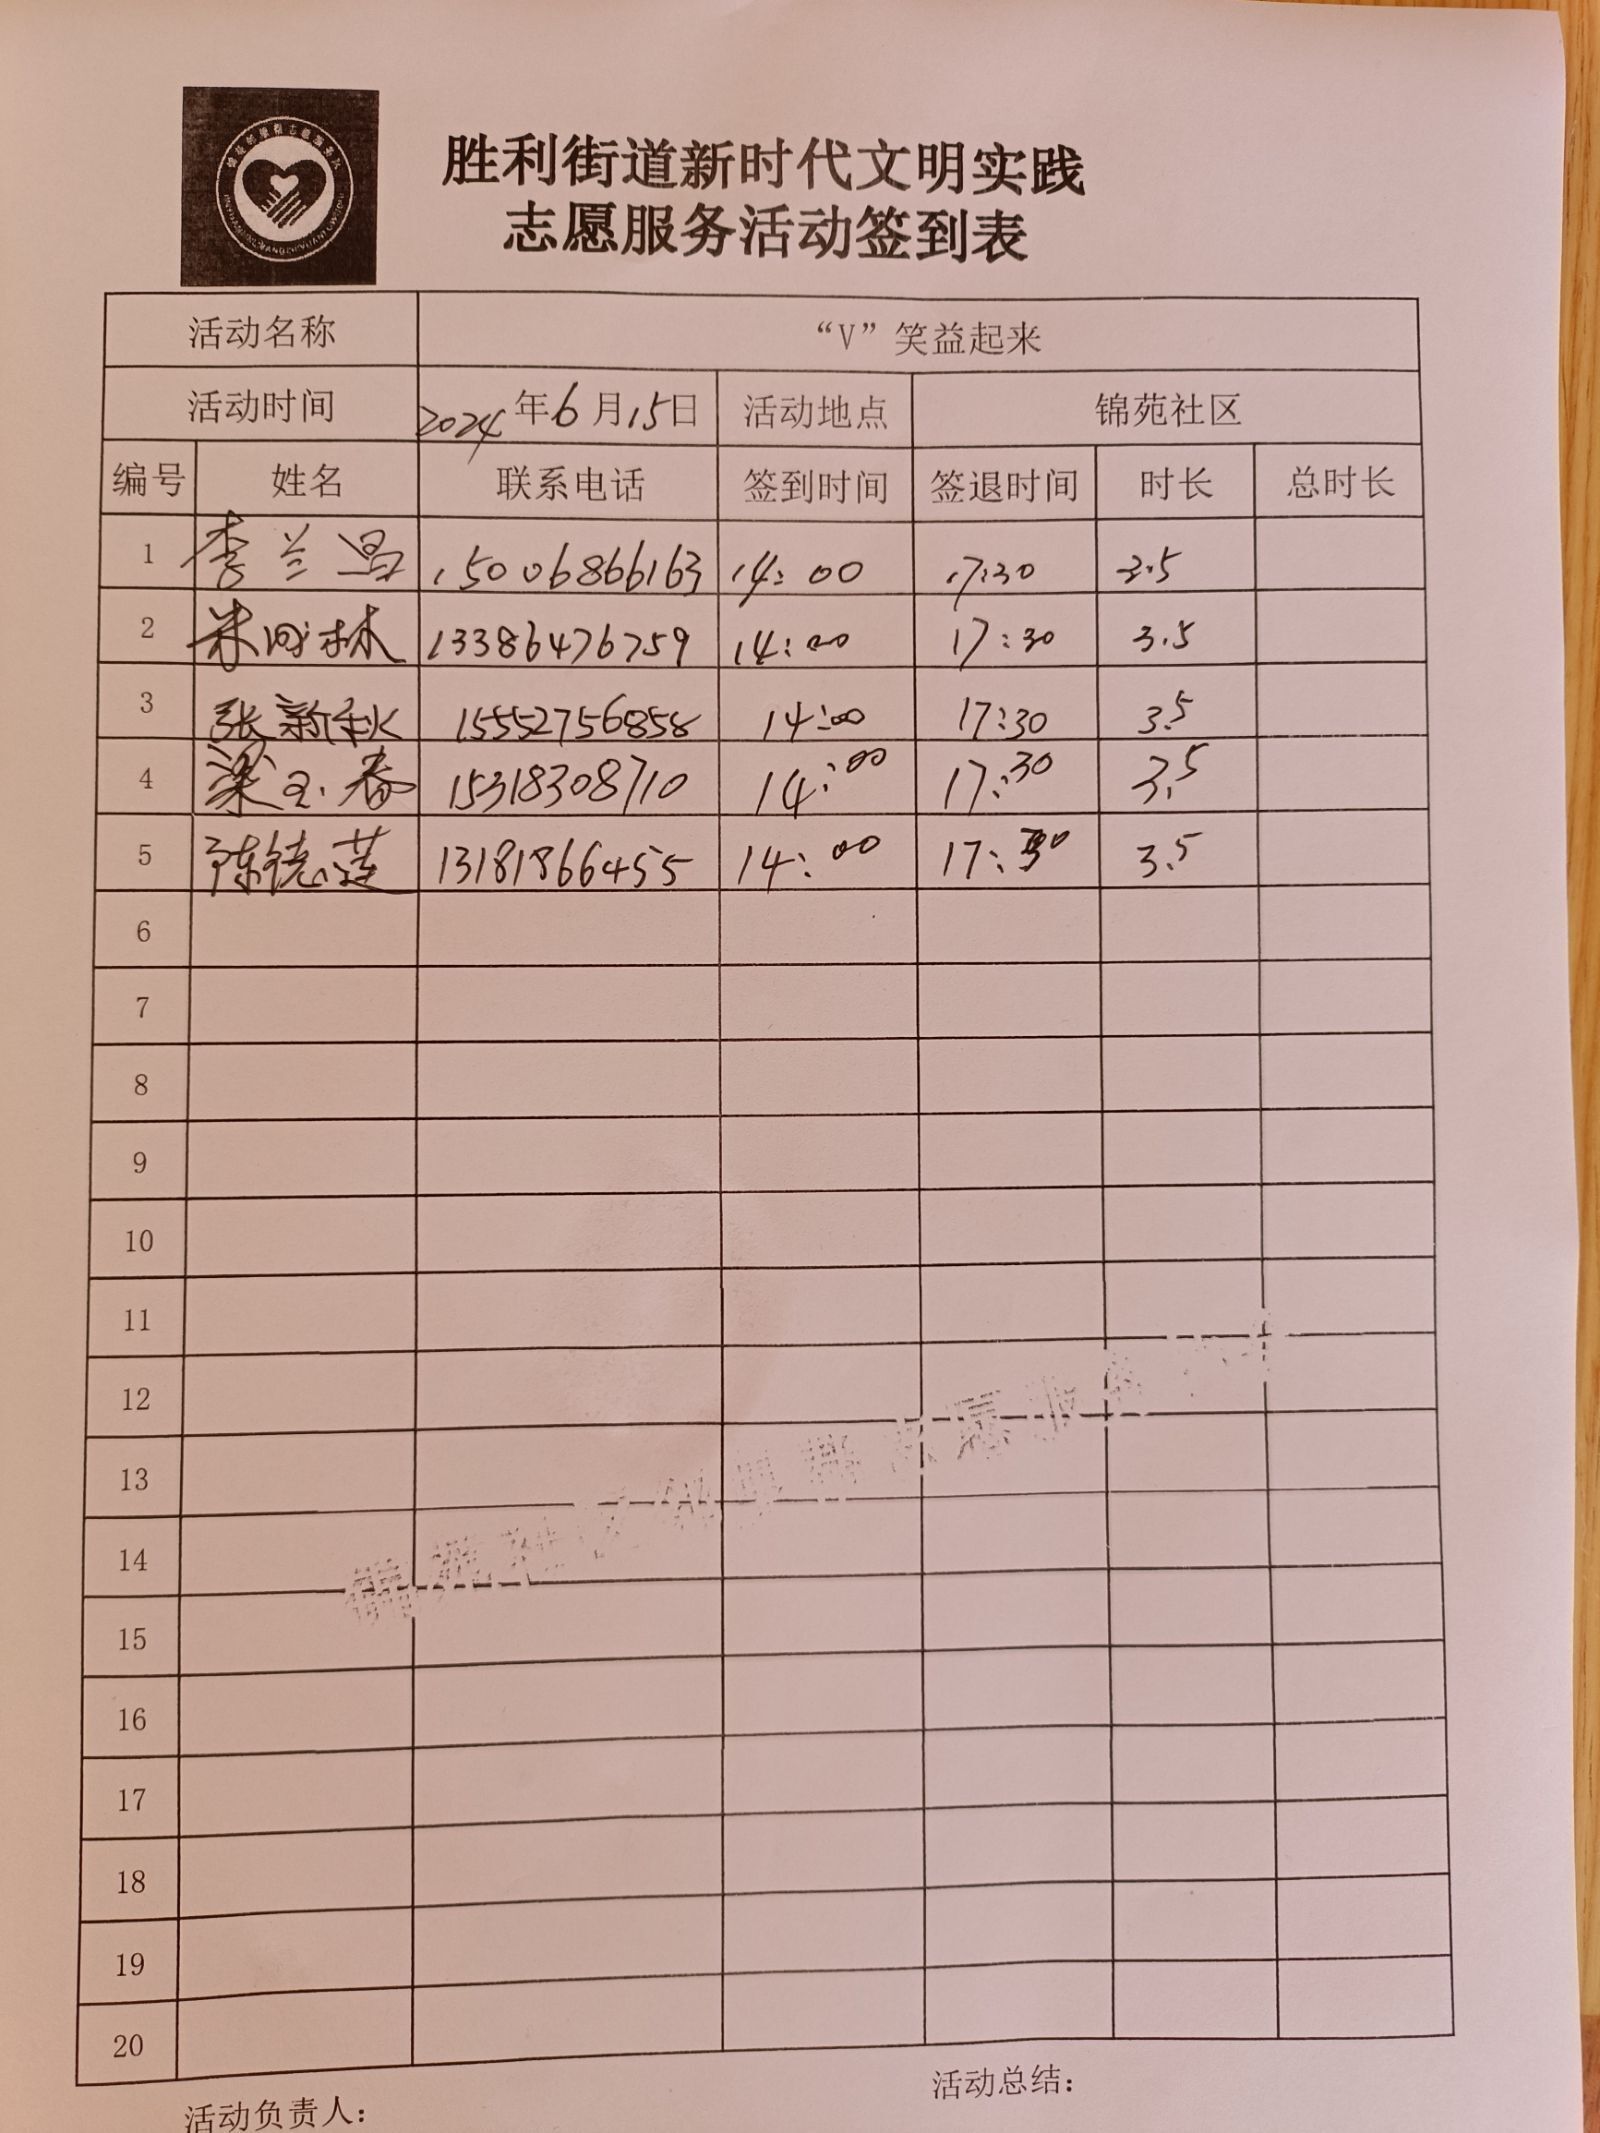 胜利街道新时代文明实践
志愿服务活动签到表
活动名称 “V”笑益起来
活动时间 2024年6月15日 活动地点 锦苑社区
编号 姓名 联系电话 签到时间 签退时间 时长 总时长
1 李兰 15006866163 14:00 17:30 3.5
2 13386476759 14:00 17:30 3.5
3 张新秋 15552756858 14:00 17:30 3.5
4 梁玉春 15318308710 14:00 17:30 3.5
5 陈德莲 13181866455 14:00 17:30 3.5
6
7
8
9
10
11
12
13
14
15
16
17
18
19
20
锦苑社区 群志愿服务
活动总结：
活动负责人：